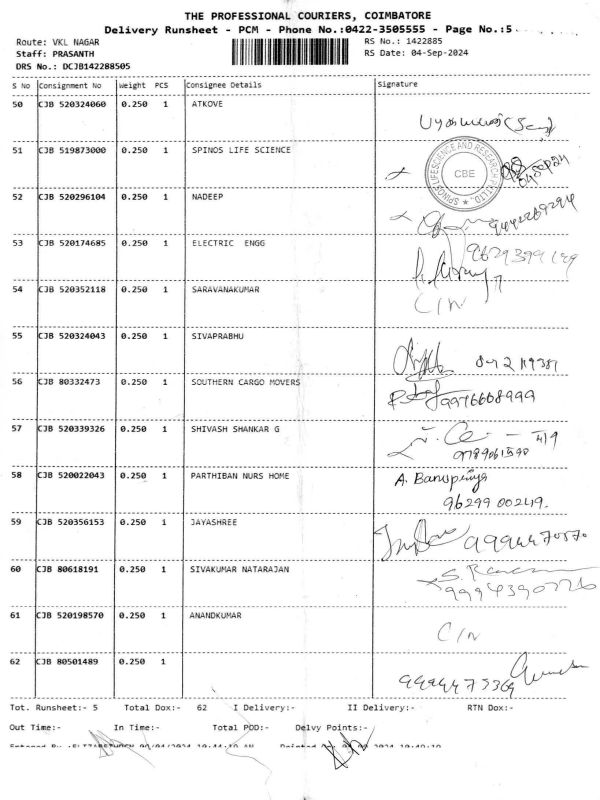 THE PROFESSIONAL COURIERS, COIMBATORE
Delivery Runsheet - PCM - Phone No.:0422-3505555 - Page No.:5
Route: VKL NAGAR
RS No.: 1422885
Staff: PRASANTH
RS Date: 04-Sep-2024
DRS No.: DCJB142288505
S No Consignment No Weight PCS Consignee Details Signature
50 CJB 520324060 0.250 1 ATKOVE
51 CJB 519873000 0.250 1 SPINOS LIFE SCIENCE
SPINOS LIFE SCIENCE AND RESEARCH PVT LTD.
CBE
52 CJB 520296104 0.250 1 NADEEP
53 CJB 520174685 0.250 1 ELECTRIC ENGG
54 CJB 520352118 0.250 1 SARAVANAKUMAR
C/N
55 CJB 520324043 0.250 1 SIVAPRABHU
56 CJB 80332473 0.250 1 SOUTHERN CARGO MOVERS
9976668999
57 CJB 520339326 0.250 1 SHIVASH SHANKAR G
58 CJB 520022043 0.250 1 PARTHIBAN NURS HOME A. Banupriya
96299 00249.
59 CJB 520356153 0.250 1 JAYASHREE
60 CJB 80618191 0.250 1 SIVAKUMAR NATARAJAN
9994390726
61 CJB 520198570 0.250 1 ANANDKUMAR
C/N
62 CJB 80501489 0.250 1
9994475369
Tot. Runsheet:- 5 Total Dox:- 62 I Delivery:- II Delivery:- RTN Dox:-
Out Time:- In Time:- Total POD:- Delvy Points:-